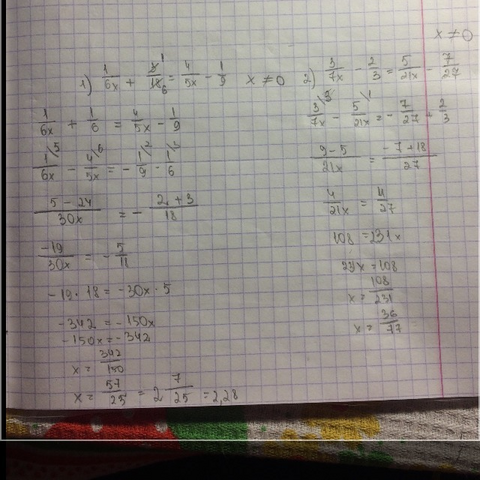 x ≠ 0
1) 1/6x + 3/18 = 4/5x - 1/9   x ≠ 0
1/6x + 1/6 = 4/5x - 1/9
1/6x - 4/5x = - 1/9 - 1/6
5 - 24/30x = - 2 + 3/18
-19/30x = - 5/11
-19 · 18 = -30x · 5
-342 = -150x
-150x = -342
x = 342/150
x = 57/25 = 2 7/25 = 2,28
2) 3/7x - 2/3 = 5/21x - 7/27
3/7x - 5/21x = - 7/27 + 2/3
9 - 5/21x = -7 + 18/27
4/21x = 11/27
108 = 231x
231x = 108
x = 108/231
x = 36/77